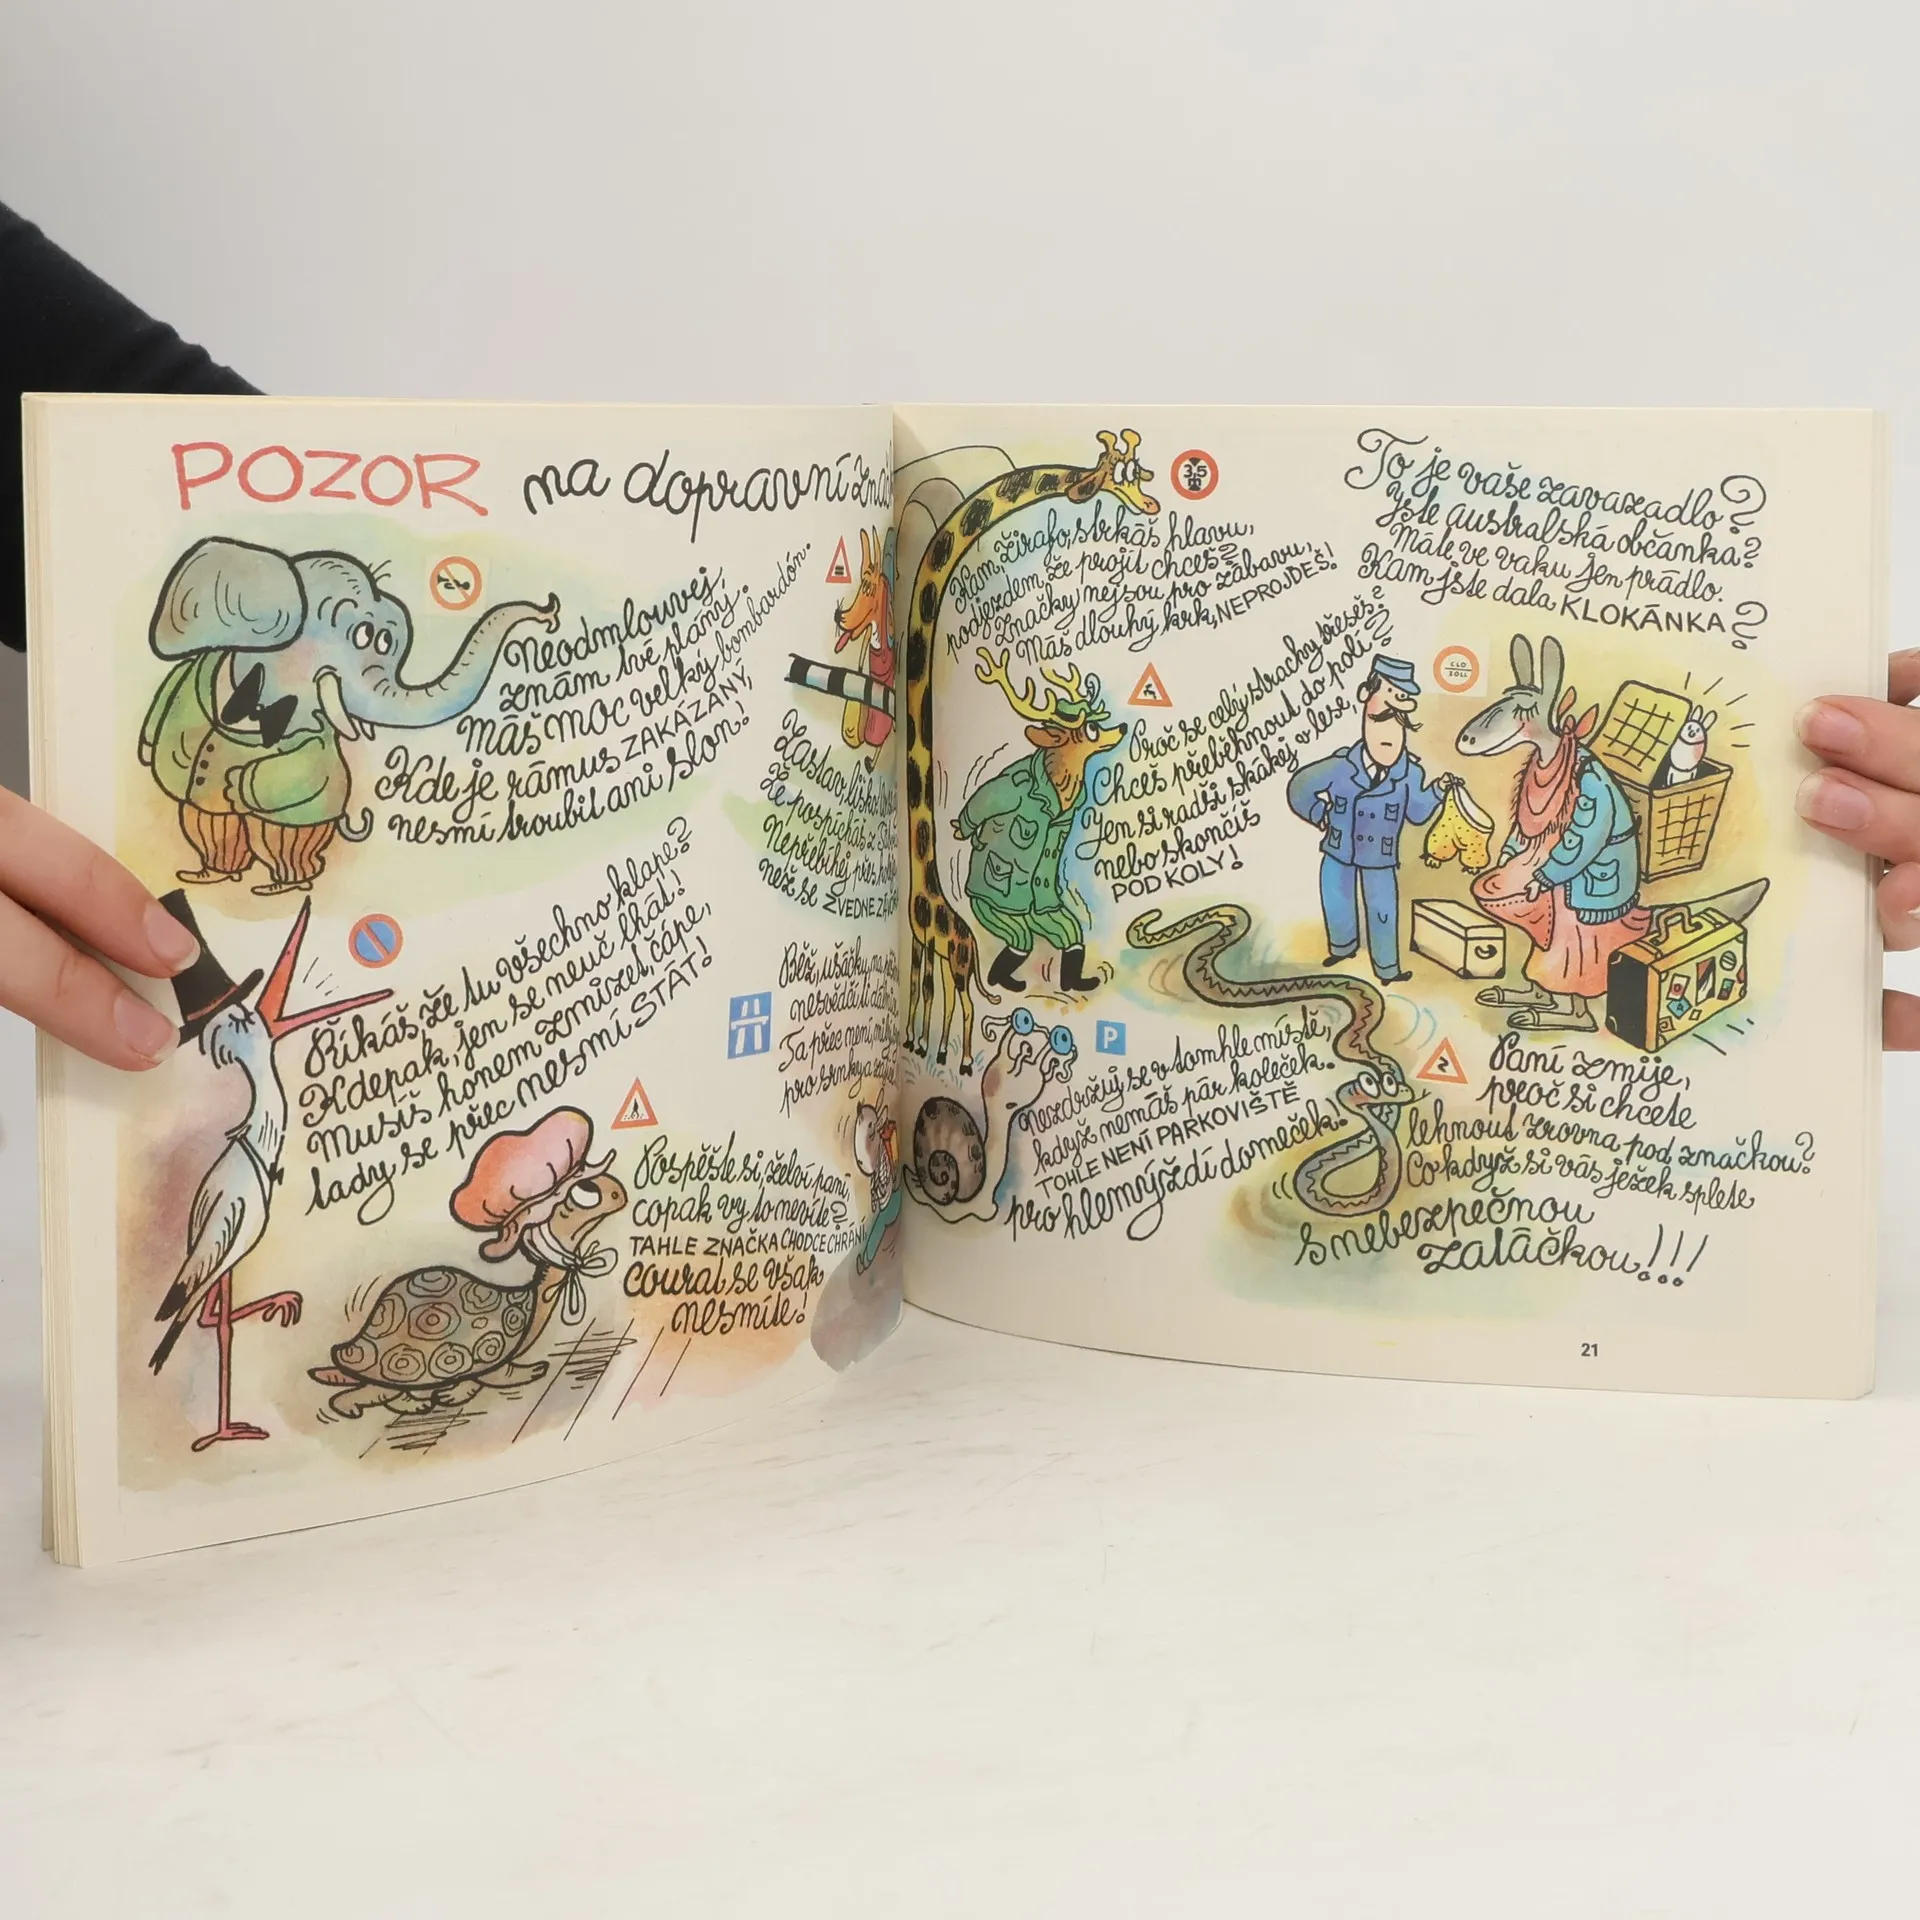 POZOR na dopravní
Neodmlouvej,
znám tvé plány.
Máš moc velký bombardón.
Kde je rámus ZAKÁZANÝ,
nesmí troubit ani slon!
Zastav, liško
že pospícháš z
Nepřebíhej přes
než se ZVEDNE
Říkáš, že tu všechno klape?
Kdepak, jen se neuč lhát!
Musíš honem zmizet, čápe,
tady se přec NESMÍ STÁT!
Běž, ušáčku, na
nesvědčí ti
Ta přec není,
pro srnky a
Pospěšte si, želví paní,
copak vy to nevíte?
TAHLE ZNAČKA CHODCE CHRÁNÍ,
courat se však
nesmíte!
3,5
m
Kam, žirafo, strkáš hlavu,
podjezdem, že projít chceš?
Značky nejsou pro zábavu,
Máš dlouhý krk, NEPROJDEŠ!
Proč se celý strachy třeseš?
Chceš přeběhnout do polí?
Jen si radši skákej v lese,
nebo skončíš
POD KOLY!
To je vaše zavazadlo?
Jste australská občanka?
Máte ve vaku jen prádlo.
Kam jste dala KLOKÁNKA?
CLO
ZOLL
P
Nezdržuj se v tomhle místě,
když nemáš pár koleček.
TOHLE NENÍ PARKOVIŠTĚ
pro hlemýždí domeček!
Paní zmije,
proč si chcete
lehnout zrovna pod značkou?
Co když si vás ježek splete
s nebezpečnou
zatáčkou!!!
21